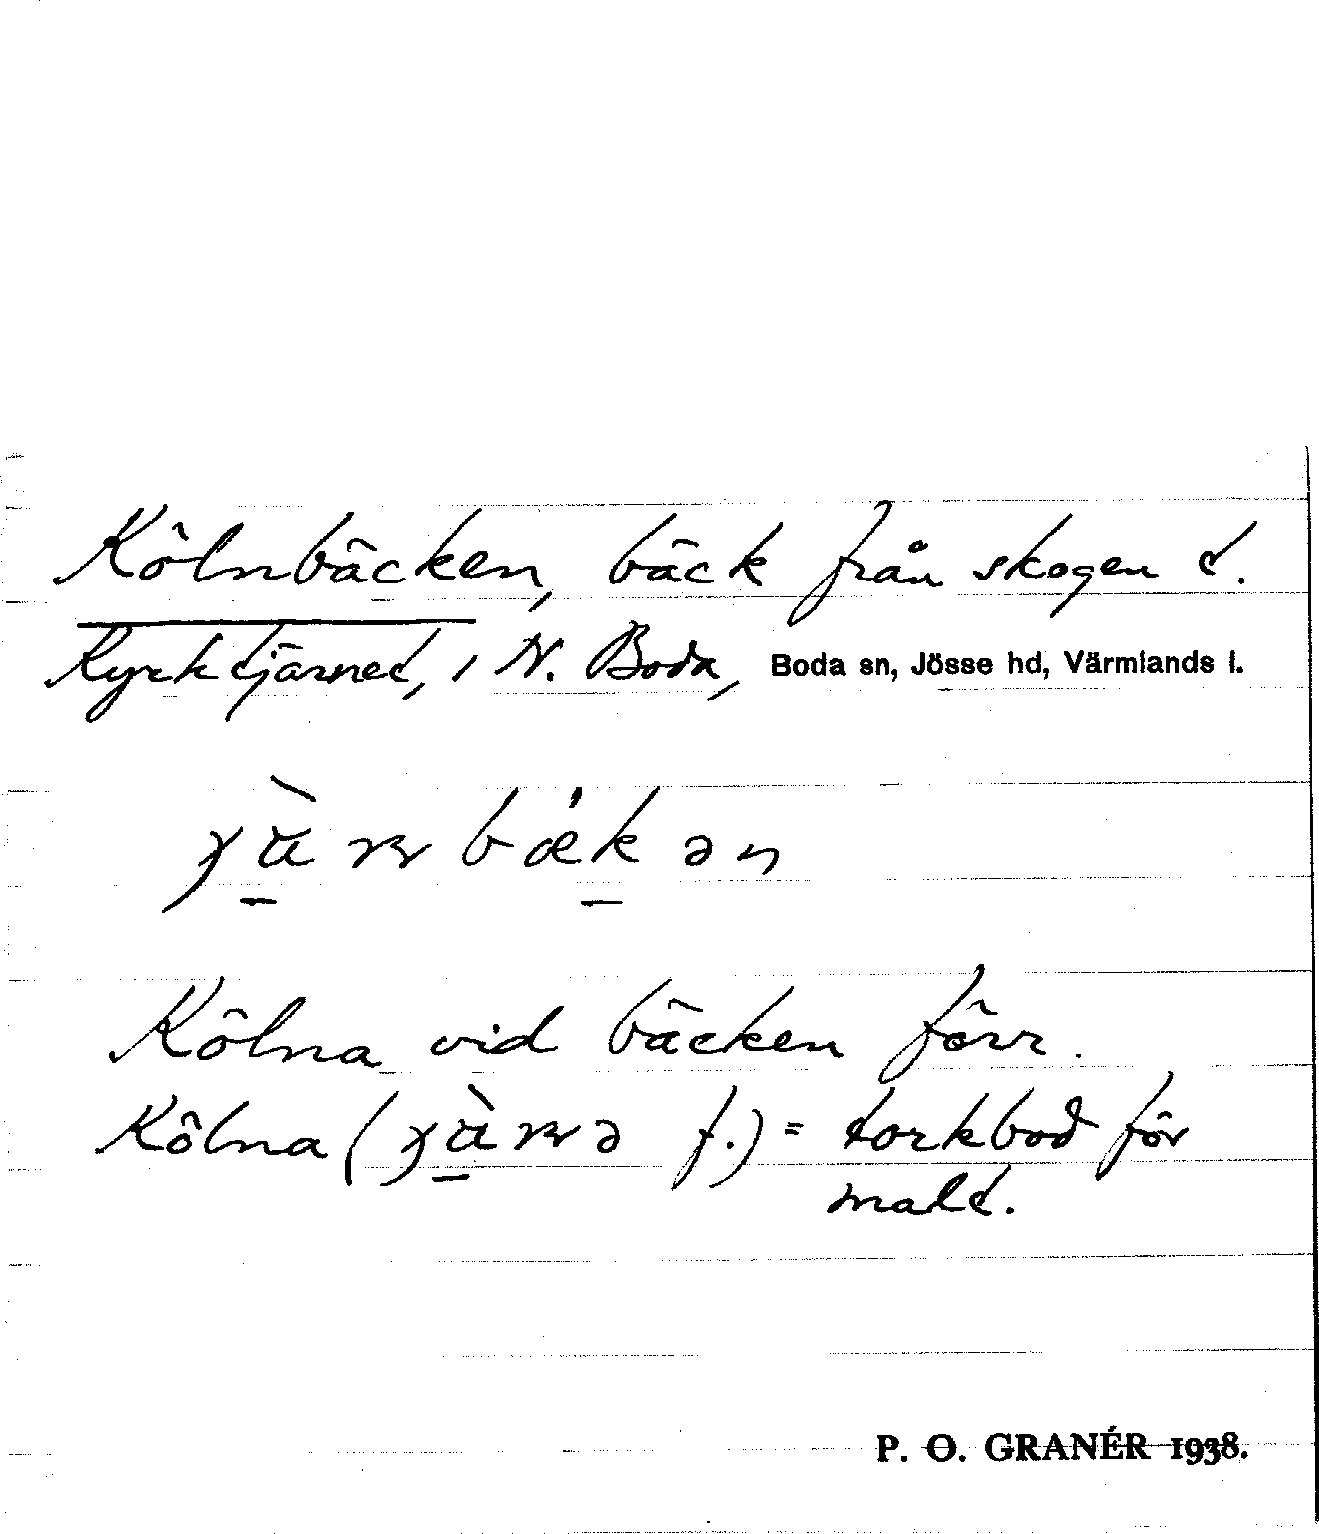 Kölnbäcken, bäck från skogen t.
Kyrktjärnet, i N. Boda, Boda sn, Jösse hd, Värmlands l.
Kölna vid bäcken förr.
Kölna ( f.) = torkbod för
malt.
P. O. GRANÉR 1938.